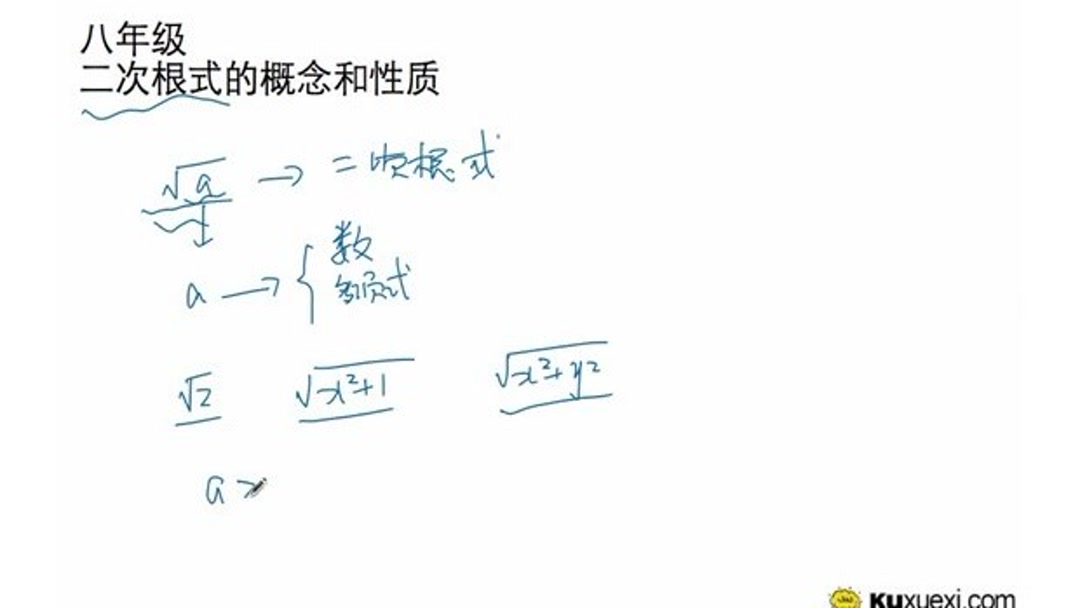 八年级
二次根式的概念和性质
√a → 二次根式
a → { 数
多项式
√2 √x²+1 √x²+y²
a >
Kuxuexi.com